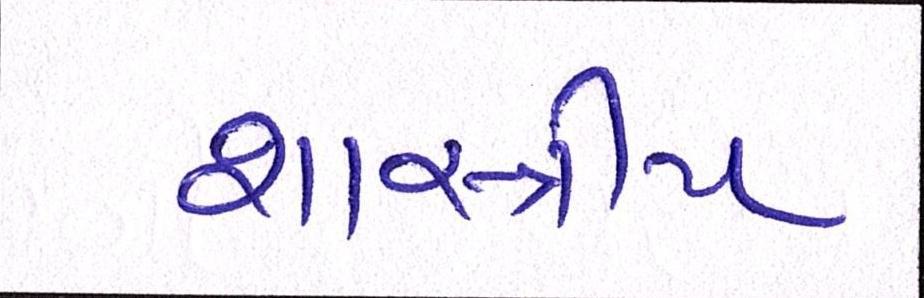 શાસ્ત્રીય